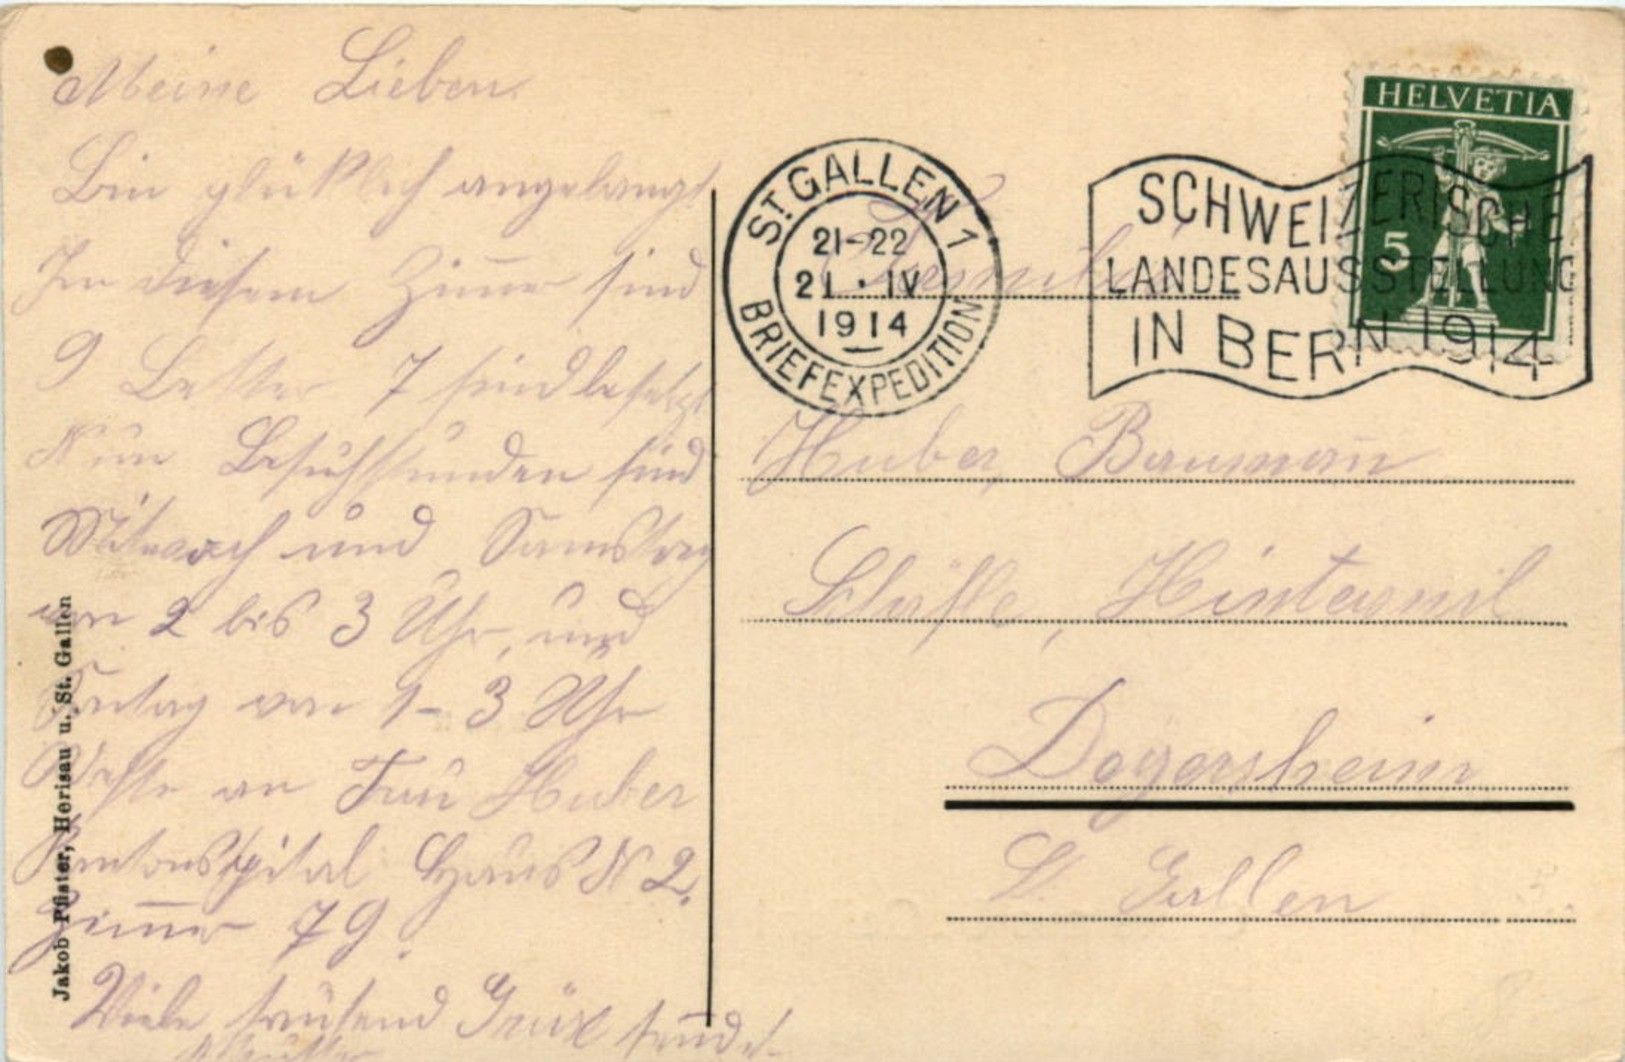 Meine Lieben.
Bin glücklich angelangt
In diesem Zimmer sind
9 Better 7 sind besetzt
Nun Besuchstunden sind
Mitwoch und Samstag
von 2 bis 3 Uhr, und
Sontag von 1-3 Uhr
Adresse an Frau Huber
Kantonsspital Haus N 2.
Zimmer 79.
Viele tausend Grüße sendet
Mutter
Jakob Pfister, Herisau u. St. Gallen
ST. GALLEN 1
21-22
21·IV
1914
BRIEFEXPEDITION
SCHWEIZERISCHE
LANDESAUSSTELLUNG
IN BERN 1914
HELVETIA
5
Familie
Huber, Baumann
Schäfle, Hinterwil
Degersheim
St. Gallen